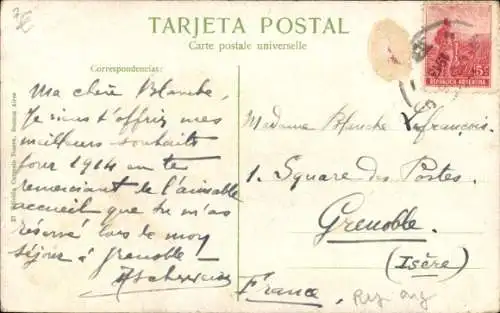 TARJETA POSTAL
Carte postale universelle
Correspondencias:
REPUBLICA ARGENTINA
5
Ma chère Blanche,
Je viens t'offrir mes
meilleurs souhaits
pour 1914 en te
remerciant de l'aimable
accueil que tu m'as
réservé lors de mon
séjour à Grenoble
Madame Blanche Lefrançois.
1. Square des Postes.
Grenoble.
(Isère)
France.